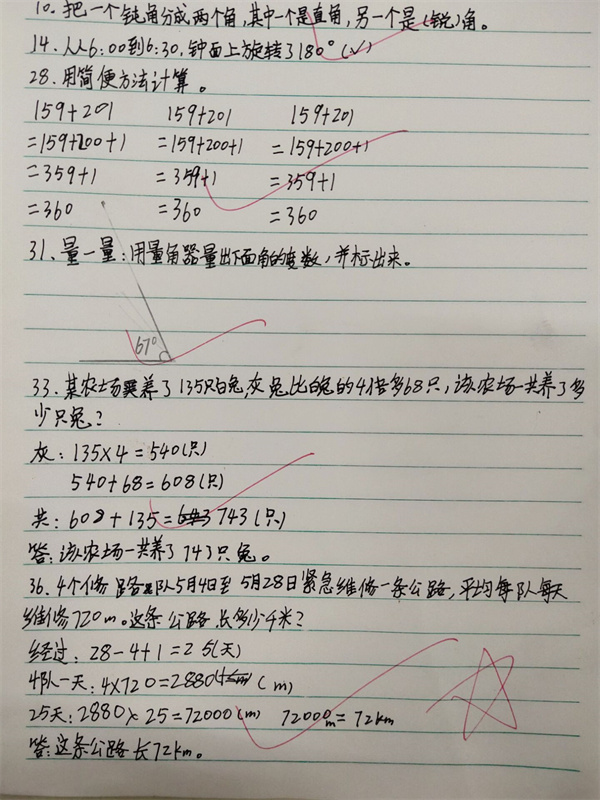 10. 把一个钝角分成两个角,其中一个是直角,另一个是(锐)角。
14. 从6:00到6:30,钟面上旋转了180°(√)
28. 用简便方法计算。
159+201 159+201 159+201
=159+200+1 =159+200+1 =159+200+1
=359+1 =359+1 =359+1
=360 =360 =360
31、量一量:用量角器量出下面角的度数,并标出来。
67°
33. 某农场养了135只白兔,灰兔比白兔的4倍多68只,该农场一共养了多
少只兔?
灰:135×4=540(只)
540+68=608(只)
共:608+135=743(只)
答:该农场一共养了743只兔。
36. 4个修路队5月4日至5月28日紧急维修一条公路,平均每队每天
维修720m。这条公路长多少千米?
经过:28-4+1=25(天)
4队一天:4×720=2880(m)
25天:2880×25=72000(m) 72000m=72km
答:这条公路长72km。